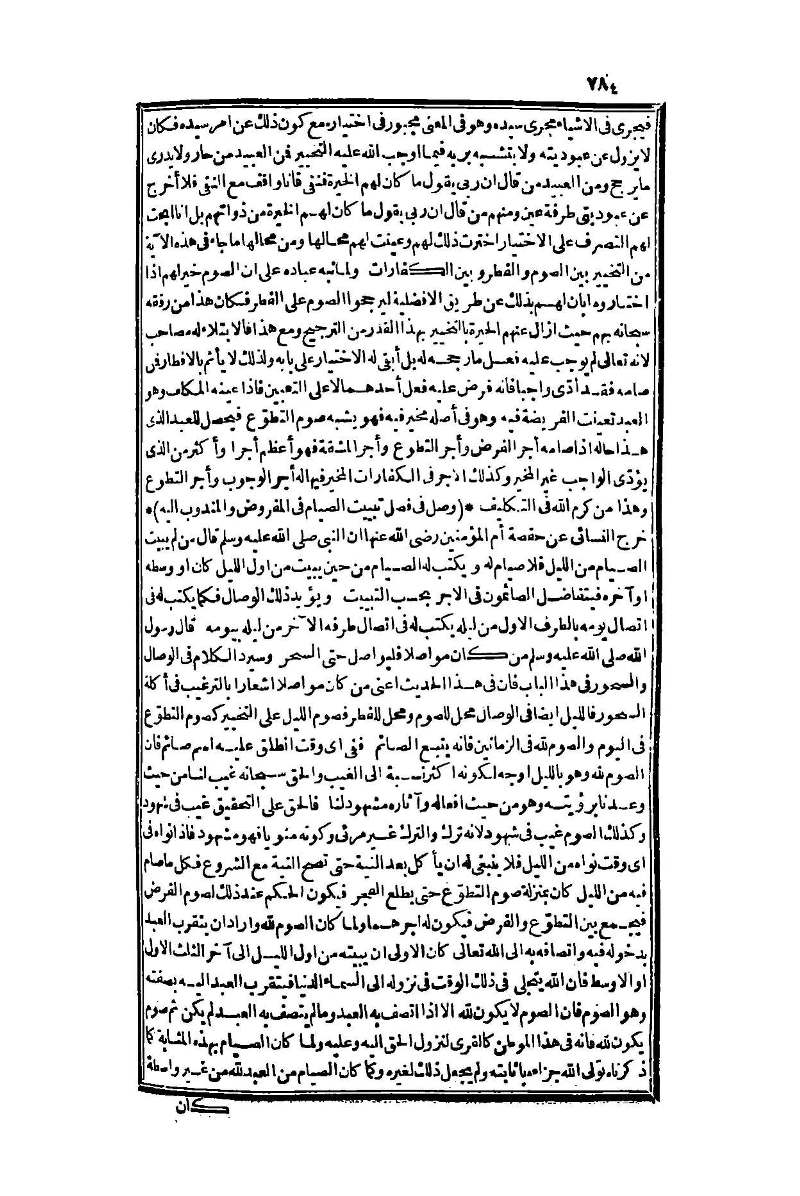 ٧٨٤
فيجرى فى الاشياء مجرى سيده وهو فى المعنى مجبور فى اختياره مع كون ذلك عن امر سيده فكان
لا يزول عن عبوديته ولا يتشبه بربه فيما اوجب الله عليه التخيير فمن العبيد من حار ولا يدرى
ما يرجح ومن العبيد من قال ان ربى يقول ما كان لهم الخيرة فنفى فانا واقف مع النفى فلا أخرج
عن عبوديتى طرفة عين ومنهم من قال ان ربى يقول ما كان لهم الخيرة من ذواتهم بل انا ابحت
لهم التصرف على الاختيار اخترت ذلك لهم وعينت لهم محالها ومن محالها ما جاء فى هذه الآية
من التخيير بين الصوم والفطر وبين الكفارات ولما نبه عباده على ان الصوم خير لهم اذا
اختاروه ابان لهم بذلك عن طريق الافضلية ليرجحوا الصوم على الفطر فكان هذا من رفقه
سبحانه بهم حيث ازال عنهم الحيرة بالتخيير بهذا القدر من الترجيح ومع هذا فالابتلاء له مصاحب
لانه تعالى لم يوجب عليه فعل ما رجحه له بل أبقى له الاختيار على بابه ولذلك لا يأثم بالافطار فمن
صامه فقد أدّى واجبا فانه فرض عليه فعل أحدهما لا على التعيين فاذا عينه المكلف وهو
العبد تعينت الفريضة فيه وهو فى أصله مخير فيه فهو يشبه صوم التطوّع فيحصل للعبد الذى
هذا حاله اذا صامه أجر الفرض وأجر التطوع وأجر المشقة فهو أعظم أجرا وأكثر من الذى
يؤدّى الواجب غير المخير وكذلك الاجر فى الكفارات المخير فيها له أجر الوجوب وأجر التطوع
وهذا من كرم الله فى التكليف *(وصل فى فصل تبييت الصيام فى المفروض والمندوب اليه)*
خرج النسائى عن حفصة أم المؤمنين رضى الله عنها ان النبى صلى الله عليه وسلم قال من لم يبيت
الصيام من الليل فلا صيام له ويكتب له الصيام من حين يبيت من اول الليل كان او وسطه
او آخره فيتفاضل الصائمون فى الاجر بحسب التبييت ويؤيد ذلك الوصال فكما يكتب له فى
اتصال يومه بالطرف الاول من ليله يكتب له فى اتصال طرفه الآخر من ليله بيومه قال رسول
الله صلى الله عليه وسلم من كان مواصلا فليواصل حتى السحر وسيرد الكلام فى الوصال
والسحور فى هذا الباب فان فى هذا الحديث اعنى من كان مواصلا اشعارا بالترغيب فى أكلة
السحور فالليل ايضا فى الوصال محل للصوم ومحل للفطر فصوم الليل على التخيير كصوم التطوّع
فى اليوم والصوم لله فى الزمانين فانه يتبع الصائم ففى اى وقت انطلق عليه اسم صائم فان
الصوم لله وهو بالليل اوجه لكونه اكثر نسبة الى الغيب والحق سبحانه غيب لنا من حيث
وعدنا برؤيته وهو من حيث افعاله وآثاره مشهود لنا فالحق على التحقيق غيب فى شهود
وكذلك الصوم غيب فى شهود لانه ترك والترك غير مرئى وكونه منويا فهو مشهود فاذا نواه فى
اى وقت نواه من الليل فلا ينبغى له ان يأكل بعد النية حتى تصح النية مع الشروع فكل ما صام
فيه من الليل كان بمنزلة صوم التطوّع حتى يطلع الفجر فيكون الحكم عند ذلك لصوم الفرض
فيجمع بين التطوّع والفرض فيكون له اجرهما ولما كان الصوم لله واراد ان يتقرب العبد
بدخوله فيه واتصافه به الى الله تعالى كان الاولى ان يبيته من اول الليل الى آخر الثلث الاول
او الاوسط فان الله يتجلى فى ذلك الوقت فى نزوله الى السماء الدنيا فيتقرب العبد اليه بصفته
وهو الصوم فان الصوم لا يكون لله الا اذا اتصف به العبد وما لم يتصف به العبد لم يكن ثم صوم
يكون لله فانه فى هذا الموطن كالقرى لنزول الحق اليه وعليه ولما كان الصيام بهذه المثابة كما
ذكرناه تولى الله جزاءه بانانيته ولم يجعل ذلك لغيره وكما كان الصيام من العبد لله من غير واسطة
كان